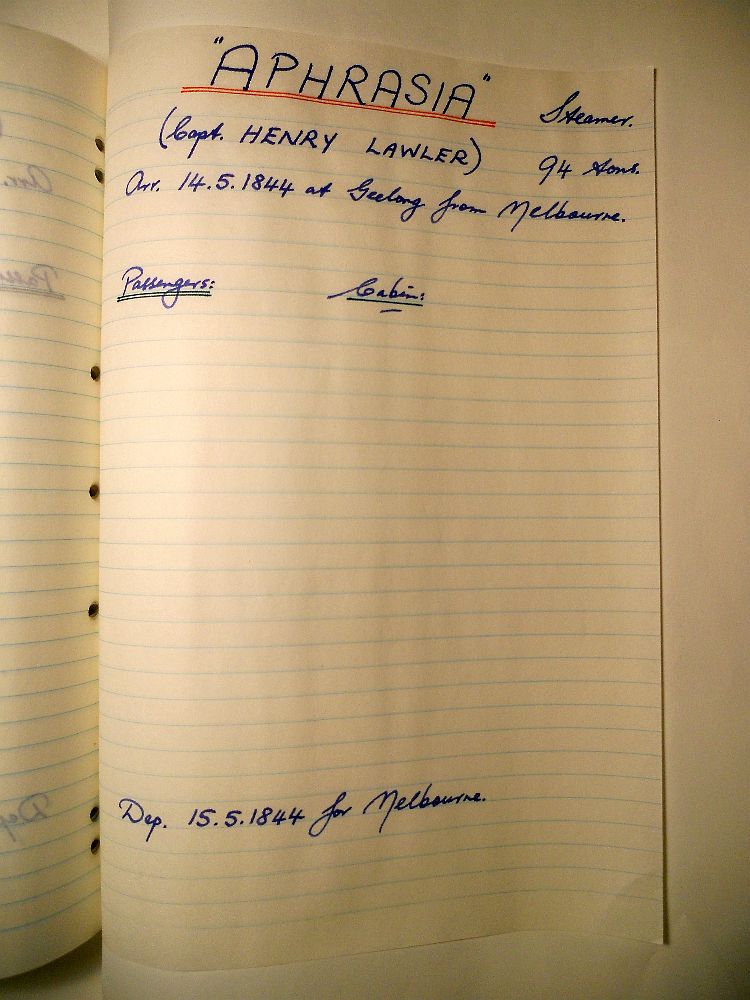 "APHRASIA"
Steamer.
(Capt. HENRY LAWLER)
94 tons.
Arr. 14.5.1844 at Geelong from Melbourne.
Passengers:
Cabin:
Dep. 15.5.1844 for Melbourne.